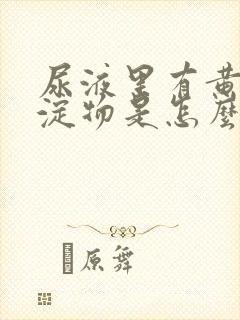 尿液里有黄
淀物是怎麼
原舞